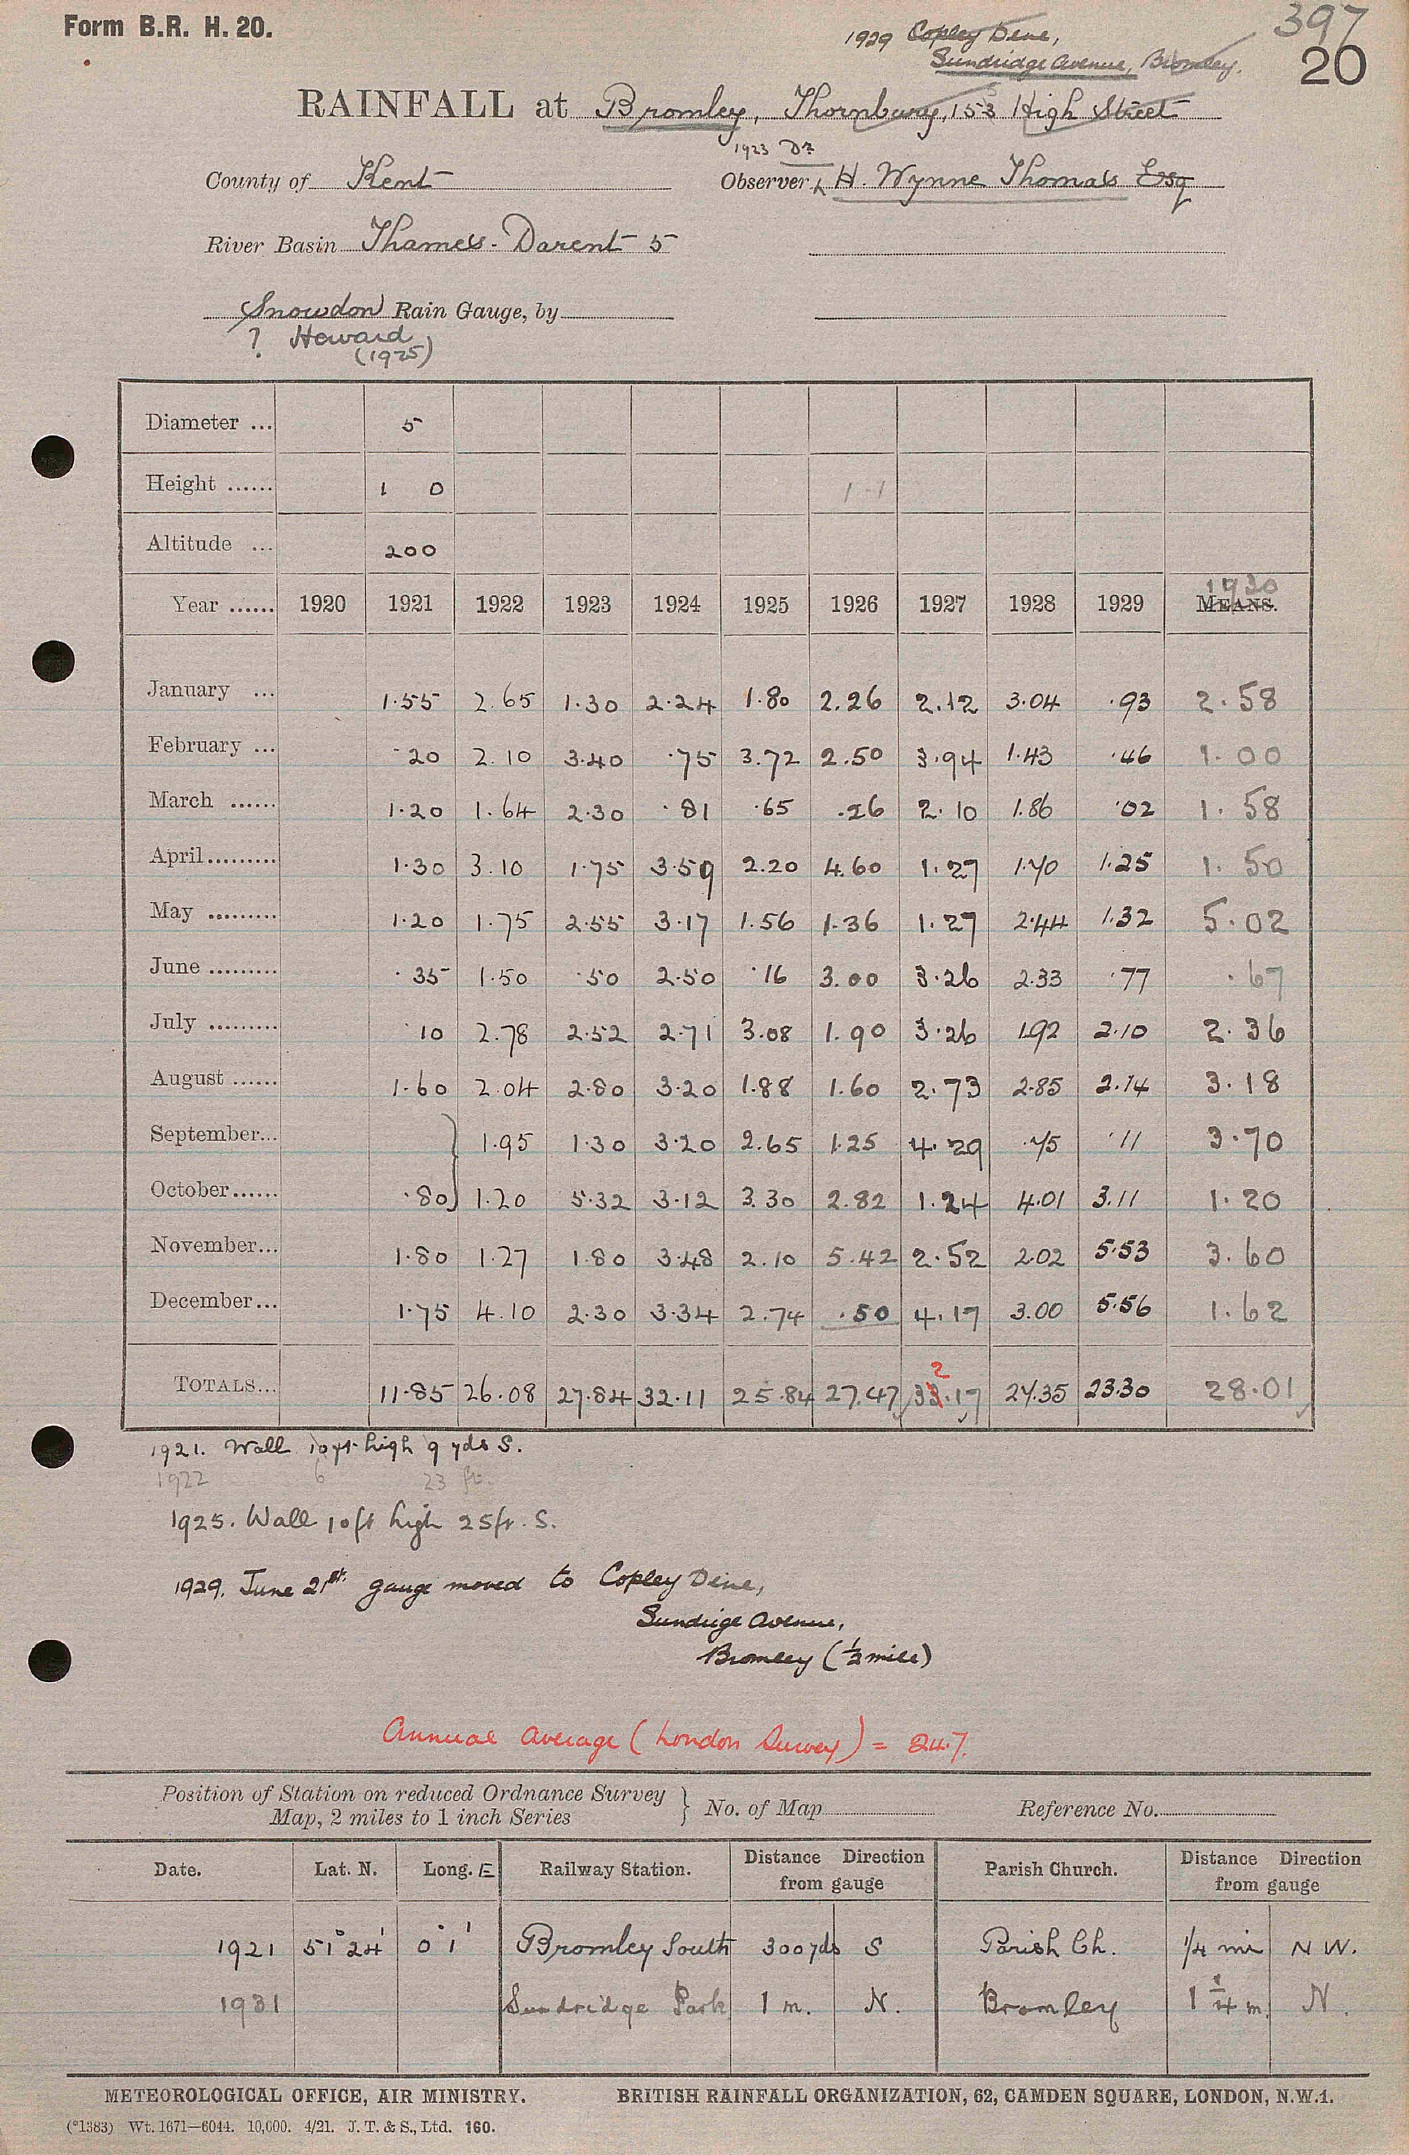 Form B.R. H. 20.
397
20
1929 Copley Dene,
Sundridge Avenue, Bromley.
RAINFALL at Bromley, Thornbury, 153 High Street
1923 Dr
County of Kent Observer H. Wynne Thomas Esq
River Basin Thames - Darent 5
Snowdon Rain Gauge, by
? Howard
(1925)
Diameter ... 5
Height ...... 1 0 1 1
Altitude ... 200
1930
Year ...... 1920 1921 1922 1923 1924 1925 1926 1927 1928 1929 MEANS.
January ... 1.55 2.65 1.30 2.24 1.80 2.26 2.12 3.04 .93 2.58
February ... .20 2.10 3.40 .75 3.72 2.50 3.94 1.43 .46 1.00
March ...... 1.20 1.64 2.30 .81 .65 .26 2.10 1.86 .02 1.58
April......... 1.30 3.10 1.75 3.59 2.20 4.60 1.27 1.70 1.25 1.50
May ......... 1.20 1.75 2.55 3.17 1.56 1.36 1.27 2.44 1.32 5.02
June ......... .35 1.50 .50 2.50 .16 3.00 3.26 2.33 .77 .67
July ......... .10 2.78 2.52 2.71 3.08 1.90 3.26 1.92 2.10 2.36
August ...... 1.60 2.04 2.80 3.20 1.88 1.60 2.73 2.85 2.14 3.18
September... } 1.95 1.30 3.20 2.65 1.25 4.29 .75 .11 3.70
October...... .80 1.20 5.32 3.12 3.30 2.82 1.24 4.01 3.11 1.20
November... 1.80 1.27 1.80 3.48 2.10 5.42 2.52 2.02 5.53 3.60
December... 1.75 4.10 2.30 3.34 2.74 .50 4.17 3.00 5.56 1.62
2
TOTALS... 11.85 26.08 27.84 32.11 25.84 27.47 33.17 27.35 23.30 28.01
1921. Wall 10 ft high 9 yds S.
1922 6 23 ft.
1925. Wall 10ft high 25ft. S.
1929. June 21st. gauge moved to Copley Dene,
Sundrige Avenue,
Bromley (½ mile)
Annual Average (London Survey) = 24.7.
Position of Station on reduced Ordnance Survey
Map, 2 miles to 1 inch Series } No. of Map Reference No.
Date. Lat. N. Long. E Railway Station. Distance Direction from gauge Parish Church. Distance Direction from gauge
1921 51° 24' 0° 1' Bromley South 300 yds S Parish Ch. ¼ mi N W.
1931 Sundridge Park 1 m. N. Bromley 1 ¼ m. N.
METEOROLOGICAL OFFICE, AIR MINISTRY. BRITISH RAINFALL ORGANIZATION, 62, CAMDEN SQUARE, LONDON, N.W.1.
(*1383) Wt. 1671—6044. 10,000. 4/21. J. T. & S., Ltd. 160.